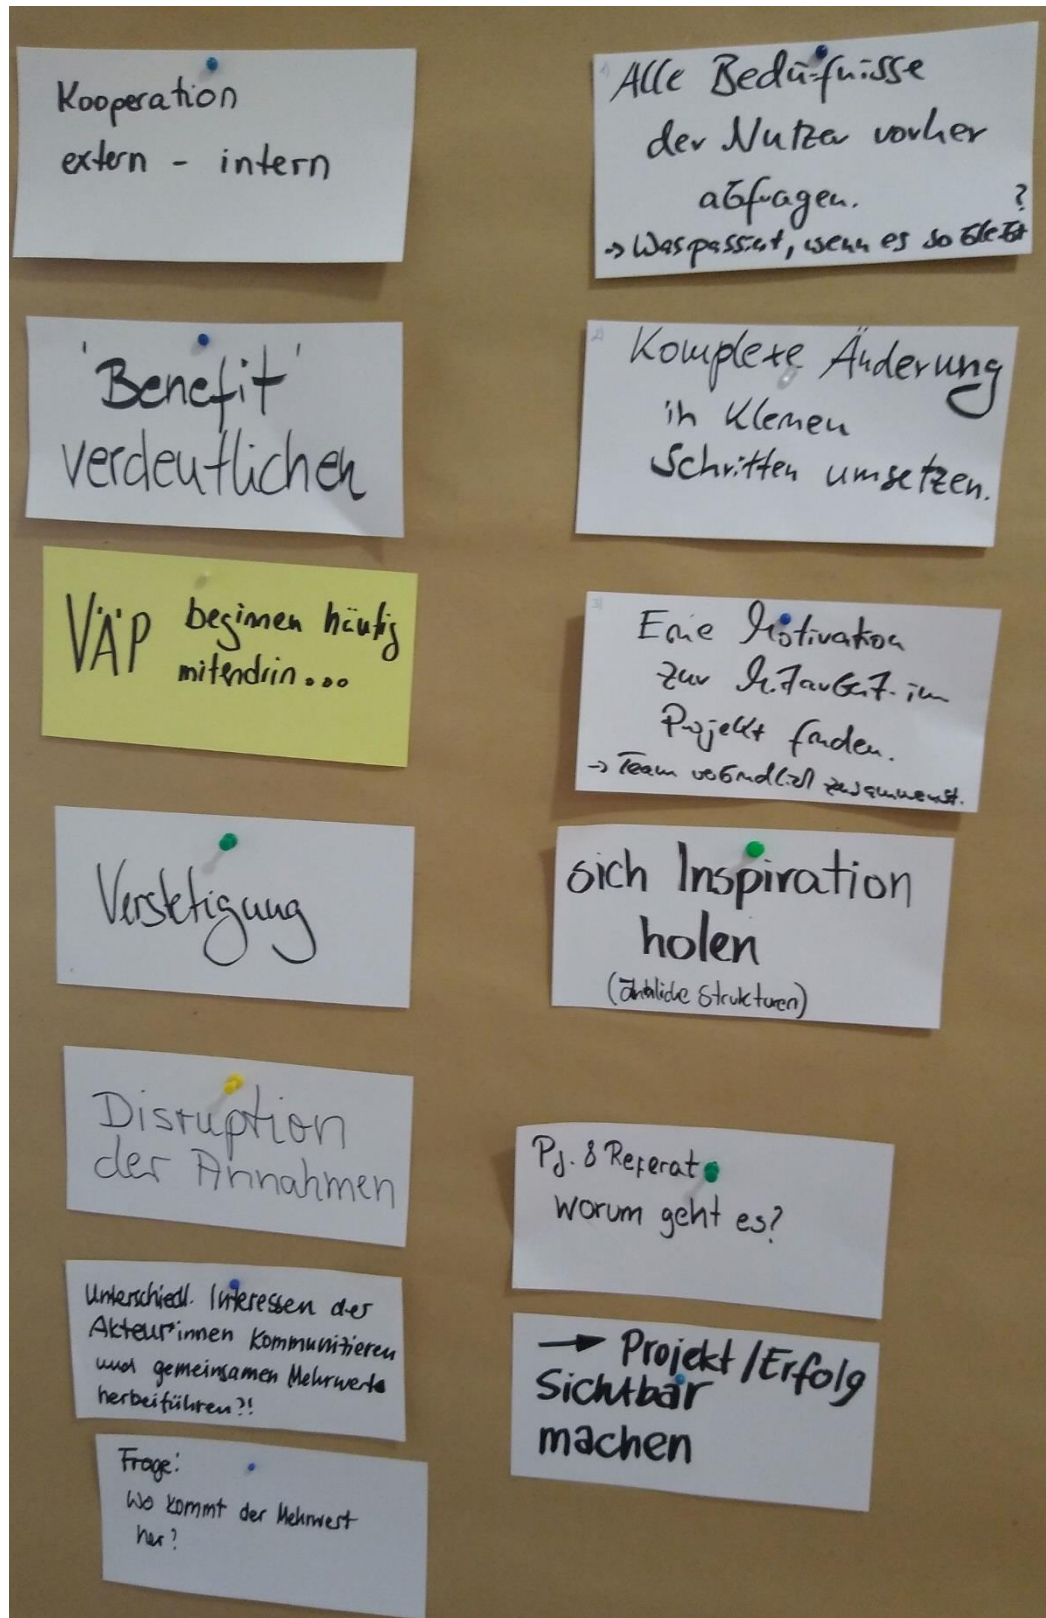 Kooperation
extern - intern
'Benefit'
verdeutlichen
VÄP beginnen häufig
mitendrin...
Verstetigung
Disruption
der Annahmen
Unterschiedl. Interessen der
Akteur*innen kommunizieren
und gemeinsamen Mehrwert
herbeiführen?!
Frage:
Wo kommt der Mehrwert
her?
1) Alle Bedürfnisse
der Nutzer vorher
abfragen.
→ Was passiert, wenn es so bleibt ?
2) Komplexe Änderung
in kleinen
Schritten umsetzen.
3) Eine Motivation
zur Mitarbeit im
Projekt finden.
→ Team verbindlich zusammenst.
sich Inspiration
holen
(ähnliche Strukturen)
Pj. & Referat
worum geht es?
→ Projekt/Erfolg
Sichtbar
machen